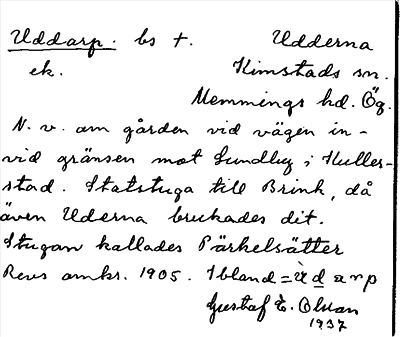 Uddarp. bs +. Udderna
ek. Kimstads sn.
Memmings hd. Ög.
N. v. om gården vid vägen in-
vid gränsen mot Sundby i Kuller-
stad. Statstuga till Brink, då
även Uderna brukades dit.
Stugan kallades Pärkelsätter
Revs omkr. 1905. Ibland = Ùdarp
Gustaf E. Olsson
1937